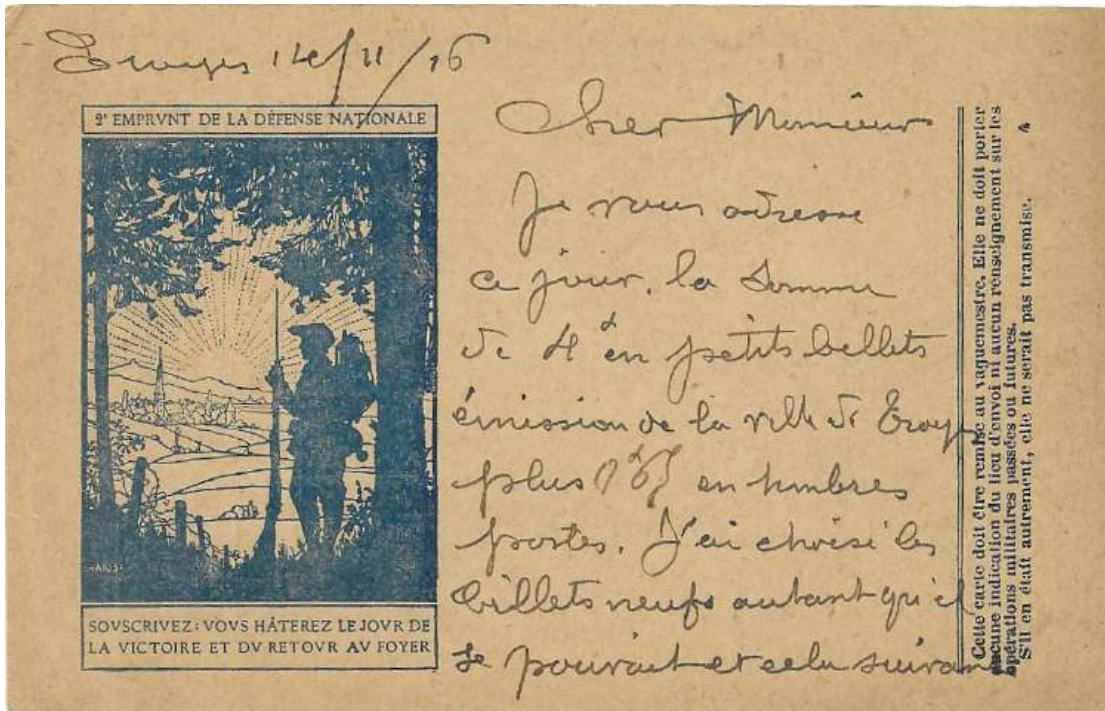 Troyes 14/11/16
2ᵉ EMPRVNT DE LA DÉFENSE NATIONALE
SOVSCRIVEZ : VOVS HÂTEREZ LE JOVR DE
LA VICTOIRE ET DV RETOVR AV FOYER
Cher Monsieur
Je vous adresse
ce jour, la somme
de 4ᶠ en petits billets
émission de la ville de Troyes
plus en timbres
postes. J'ai choisi les
billets neufs autant qu'il
se pouvait et cela suivant
Cette carte doit être remise au vaguemestre. Elle ne doit porter
aucune indication du lieu d'envoi ni aucun renseignement sur les
opérations militaires passées ou futures.
S'il en était autrement, elle ne serait pas transmise.